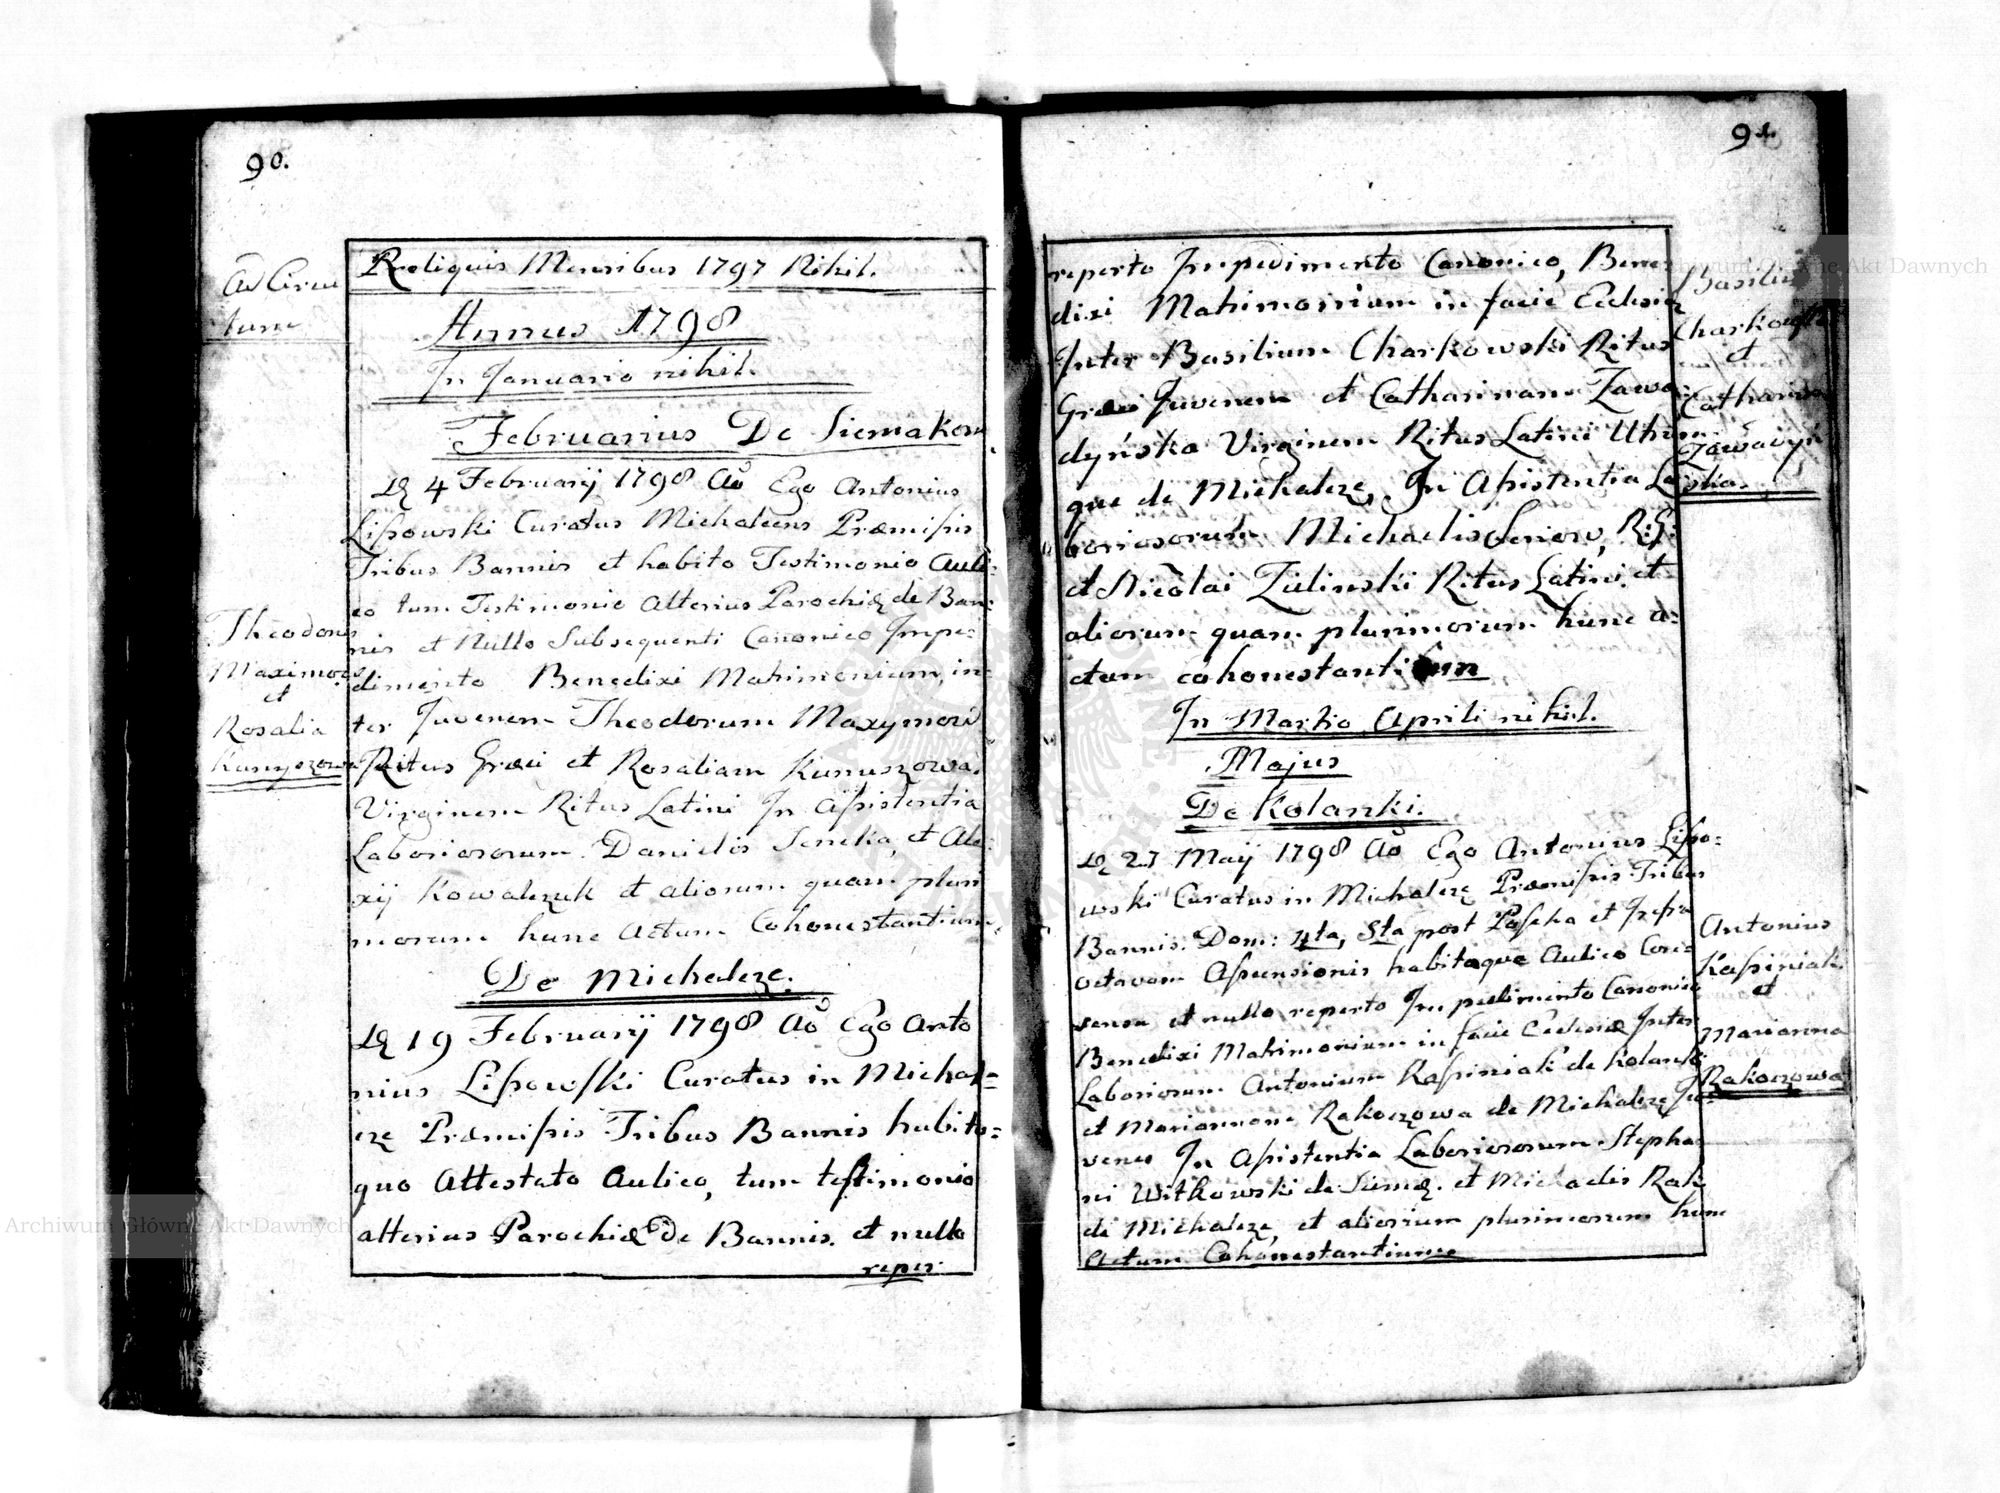 90.
Reliquis Mensibus 1797 Nihil.
Annus 1798
In Januario nihil.
Februarius De Siemakow
4 Februarij 1798 Ao Ego Antonius
Lissowski Curatus Michalcens Præmissis
Tribus Bannis et habito Testimonio Auli-
co tum Testimonio alterius Parochiæ de Ban-
nis et Nullo Subsequenti Canonico Impe-
dimento Benedixi Matrimonium, in-
ter Juvenem Theodorum Maxymow
Ritus Græci et Rosaliam Kunuszowa
Virginem Ritus Latini In Assistentia
Laboriosorum Danielis Seneka, et Ale-
xij Kowalczuk et aliorum quam pluri
morum hunc Actum Cohonestantium
De Michalcze.
19 Februarij 1798 Ao Ego Anto
nius Lissowski Curatus in Michal=
cze Præmissis Tribus Bannis habito=
que Attestato Aulico, tum testimonio
alterius Parochiæ De Bannis. et nullo
reper
Theodorus
Maximow
et
Rosalia
reperto Impedimento Canonico, Bene
dixi Matrimonium in facie Ecclesiæ
Inter Basilium Charkowski Ritus
Græci Juvenem et Catharinam Zawa
dyńska Virginem Ritus Latini Utrius
que de Michalcze, In Assistentia La
boriosorum Michaelis R: G:
et Nicolai Zulinski Ritus Latini et
aliorum quam plurimorum hunc a=
ctum cohonestantium
In Martio Aprili nihil.
Majus
De Kolanki.
27 Maij 1798 Ao Ego Antonius Lisso=
wski Curatus in Michalcze Præmissis Tribus
Bannis. Dom: 4ta, 5ta post Pascha et Infra
octavam Assensionis habitoque Aulico Con
sensu et nullo reperto Impedimento Canonico
Benedixi Matrimonium in facie Ecclesiæ Inter
Laboriosum Antonium Kassiniak de Kolanki
et Mariannam Rakoczowa de Michalcze Ju=
venes In Assistentia Laboriosorum Stepha
ni Witkowski de et Michaelis Rak
de Michalcze, et aliorum plurimorum hunc
Actum Cohonestantium
Basilius
Charkowski
et
Catharina
Zawadyń
ska.
Antonius
Kassiniak
et
Marianna
Rakoczowa
Archiwum Główne Akt Dawnych
Archiwum Główne Akt Dawnych